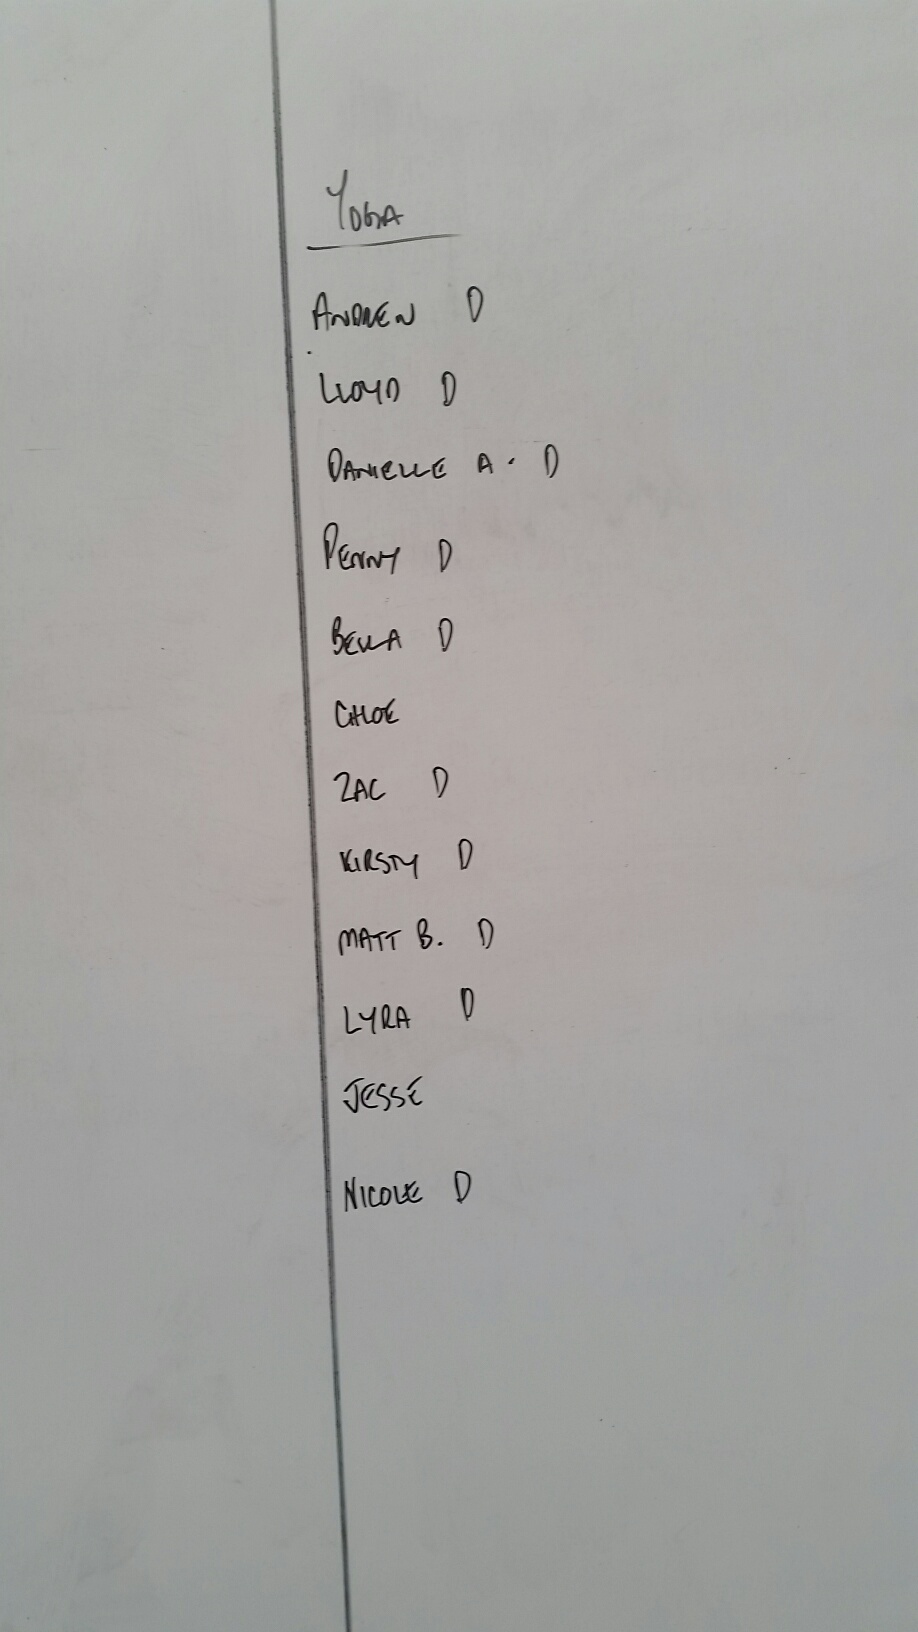 YOGA
ANDREW D
LLOYD D
DANIELLE A. D
PENNY D
BELLA D
CHLOE
ZAC D
KIRSTY D
MATT B. D
LYRA D
JESSE
NICOLE D